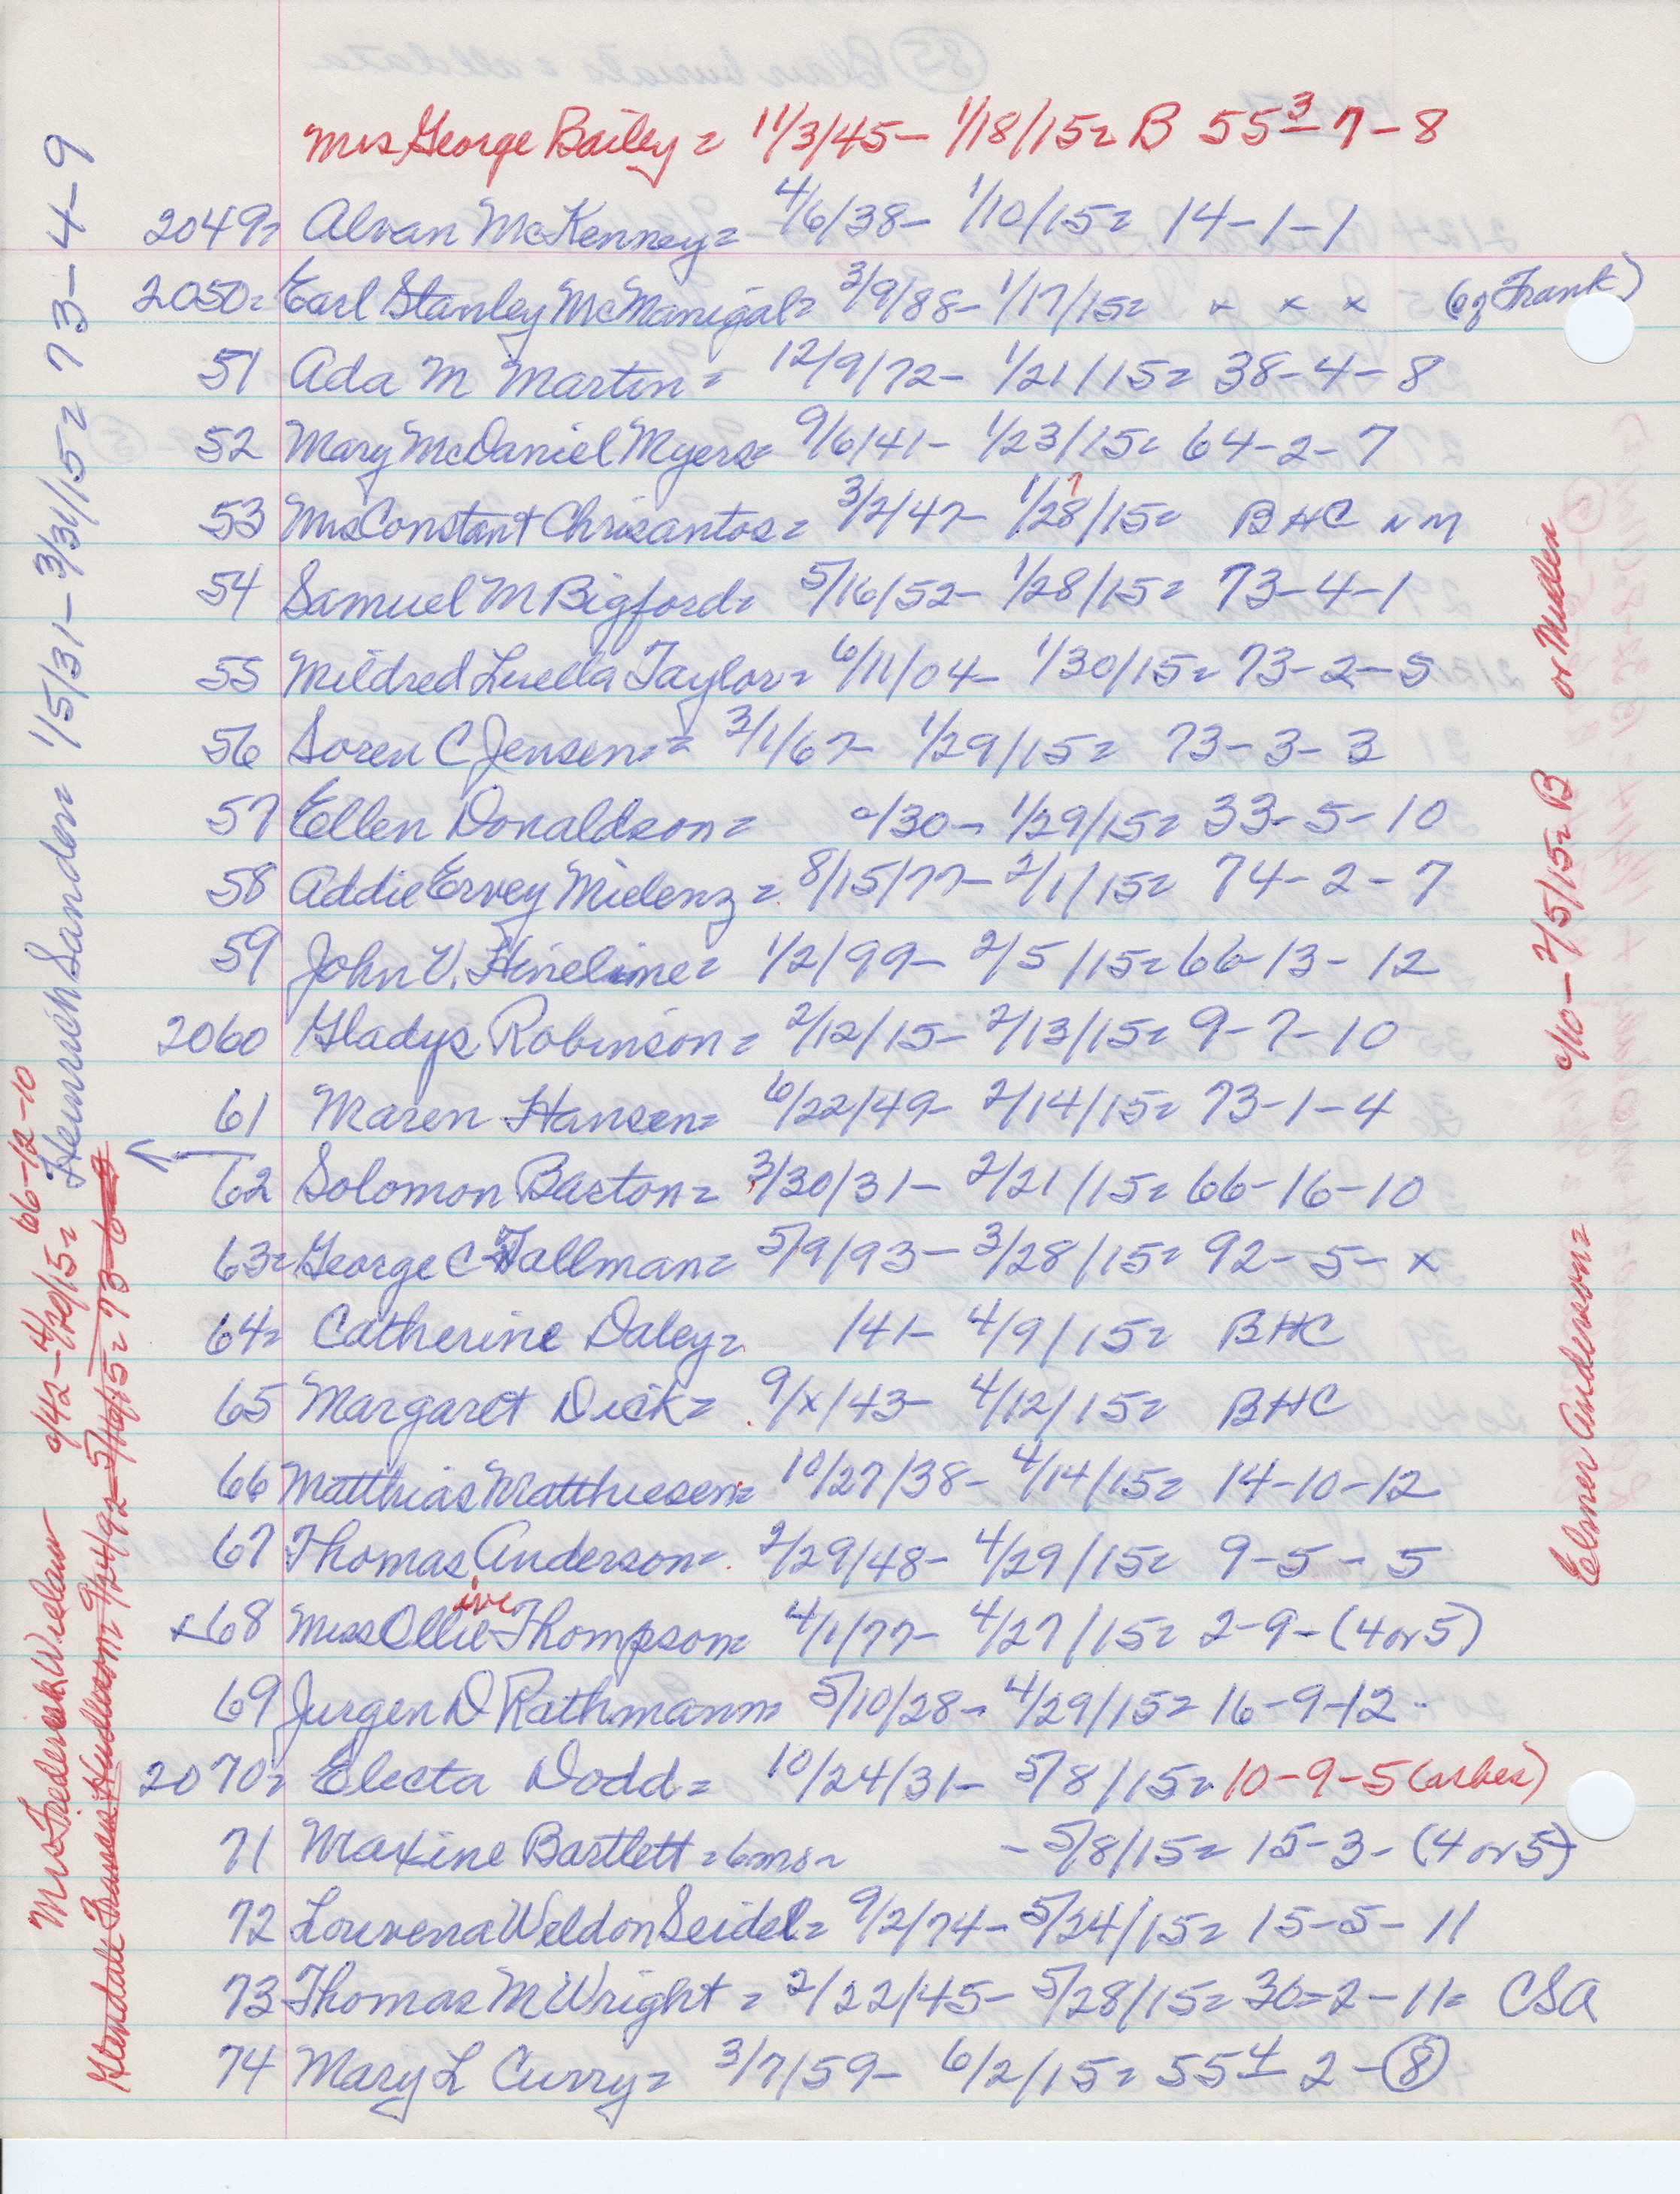 Mrs George Bailey = 11/3/45 - 1/18/15 = B 55 3 - 7 - 8
2049 = Alvan McKenney = 4/6/38 - 1/10/15 = 14 - 1 - 1
2050 = Earl Stanley McManigal = 3/9/88 - 1/17/15 = x x x (of Frank)
51 Ada M Martin = 12/9/72 - 1/21/15 = 38 - 4 - 8
52 Mary McDaniel Myers = 9/6/41 - 1/23/15 = 64 - 2 - 7
53 Mrs Constant Chrisantos = 3/2/47 - 1/28/15 = BHC NM
?
54 Samuel M Bigford = 5/16/52 - 1/28/15 = 73 - 4 - 1
55 Mildred Luella Taylor = 6/11/04 - 1/30/15 = 73 - 2 - 5
56 Soren C Jensen = 3/1/67 - 1/29/15 = 73 - 3 - 3
57 Ellen Donaldson = c/30 - 1/29/15 = 33 - 5 - 10
58 Addie Ervey Mielenz = 8/15/77 - 2/1/15 = 74 - 2 - 7
59 John V. Hineline = 1/2/99 - 2/5/15 = 66 - 13 - 12
2060 Gladys Robinson = 2/12/15 - 2/13/15 = 9 - 7 - 10
61 Maren Hansen = 6/22/49 - 2/14/15 = 73 - 1 - 4
62 Solomon Barton = 3/30/31 - 2/21/15 = 66 - 16 - 10
63 = George C Tallman = 5/9/93 - 3/28/15 = 92 - 5 - x
64 = Catherine Daley = /41 - 4/9/15 = BHC
65 Margaret Dick = 9/x/43 - 4/12/15 = BHC
66 Matthias Matthiesen = 10/27/38 - 4/14/15 = 14 - 10 - 12
67 Thomas Anderson = 2/29/48 - 4/29/15 = 9 - 5 - 5
ive
x68 Miss Ollie Thompson = 4/1/77 - 4/27/15 = 2 - 9 - (4 or 5)
69 Jurgen D Rathmann = 5/10/28 - 4/29/15 = 16 - 9 - 12
2070 = Electa Dodd = 10/24/31 - 5/8/15 = 10 - 9 - 5 (ashes)
71 Maxine Bartlett = 6 mo - - 5/8/15 = 15 - 3 - (4 or 5)
72 Louvena Weldon Seidel = 9/2/74 - 5/24/15 = 15 - 5 - 11
73 Thomas M Wright = 2/22/45 - 5/28/15 = 36 - 2 - 11 = CSA
74 Mary L Curry = 3/7/59 - 6/2/15 = 55 4 - 2 - 8
Heinrich Sander = 1/5/31 - 3/31/15 = 73 - 4 - 9
Mrs Frederick Wielan c/42 - 4/20/15 = 66 - 12 - 10
Elsner Anderson = c/10 - 2/5/15 = B or Miden